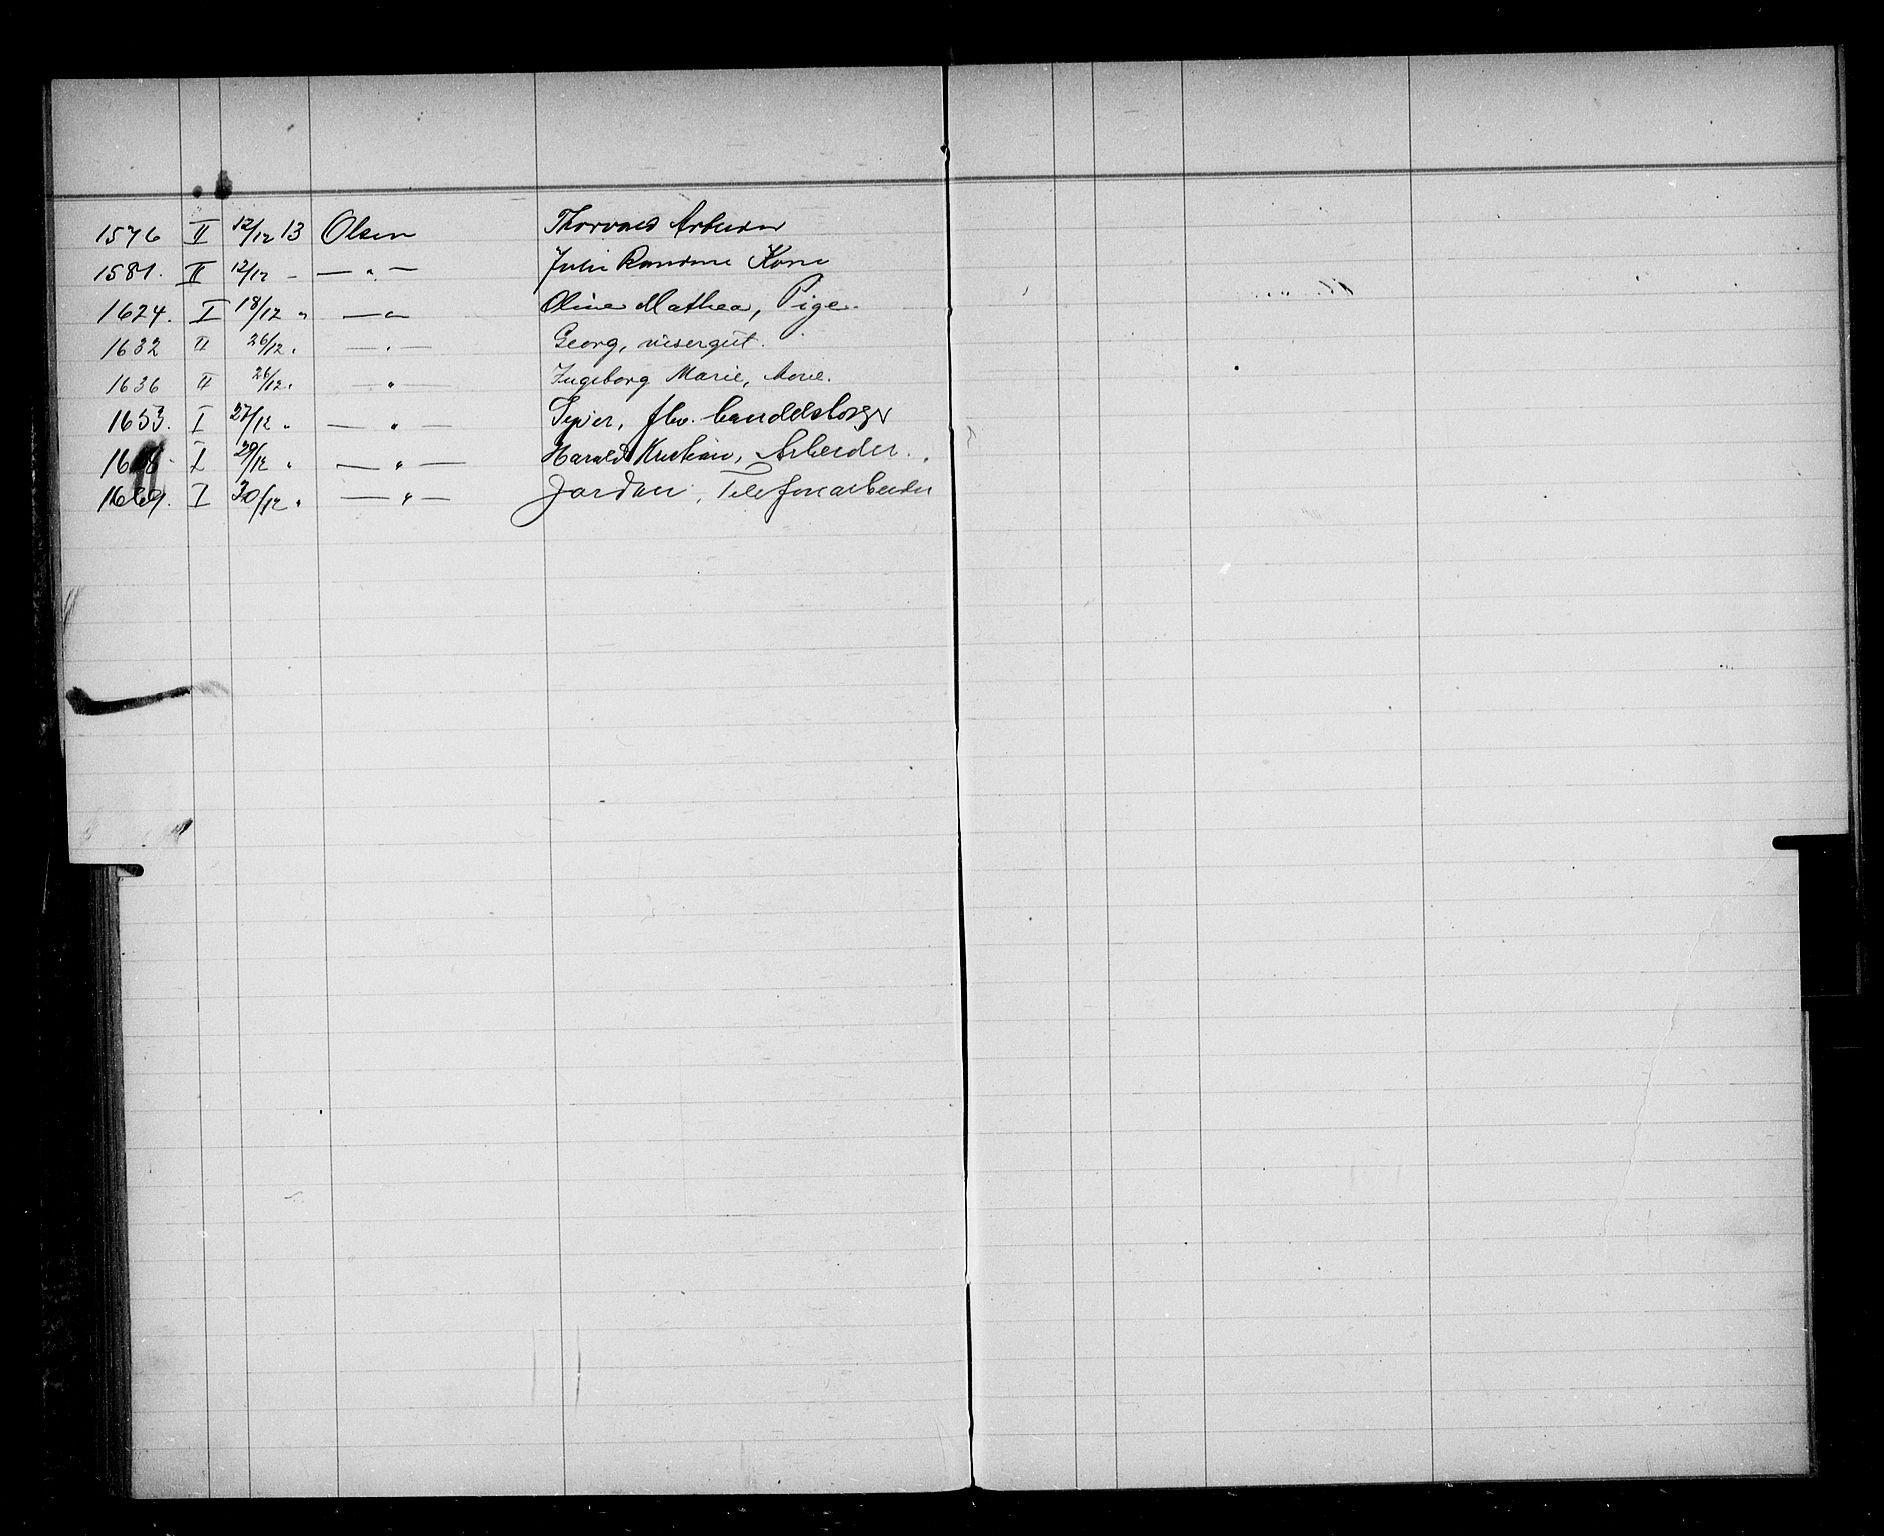 1576 II 12/12 13 Olsen Thorvald Arbeider
1581. II 12/12 - — " — Julie Kone
1624. I 18/12 " — " — Oline Mathea, Pige.
1632 II 26/12 " — " — Georg, visergut.
1636 II 26/12 " — " — Ingeborg Marie, kone.
1653. I 27/12 " — " — fhv. handelsborger
I 29/12 " — " — Harald Kristian, Arbeider.
1669. I 30/12 " — " — Jordan, Telefonarbeider